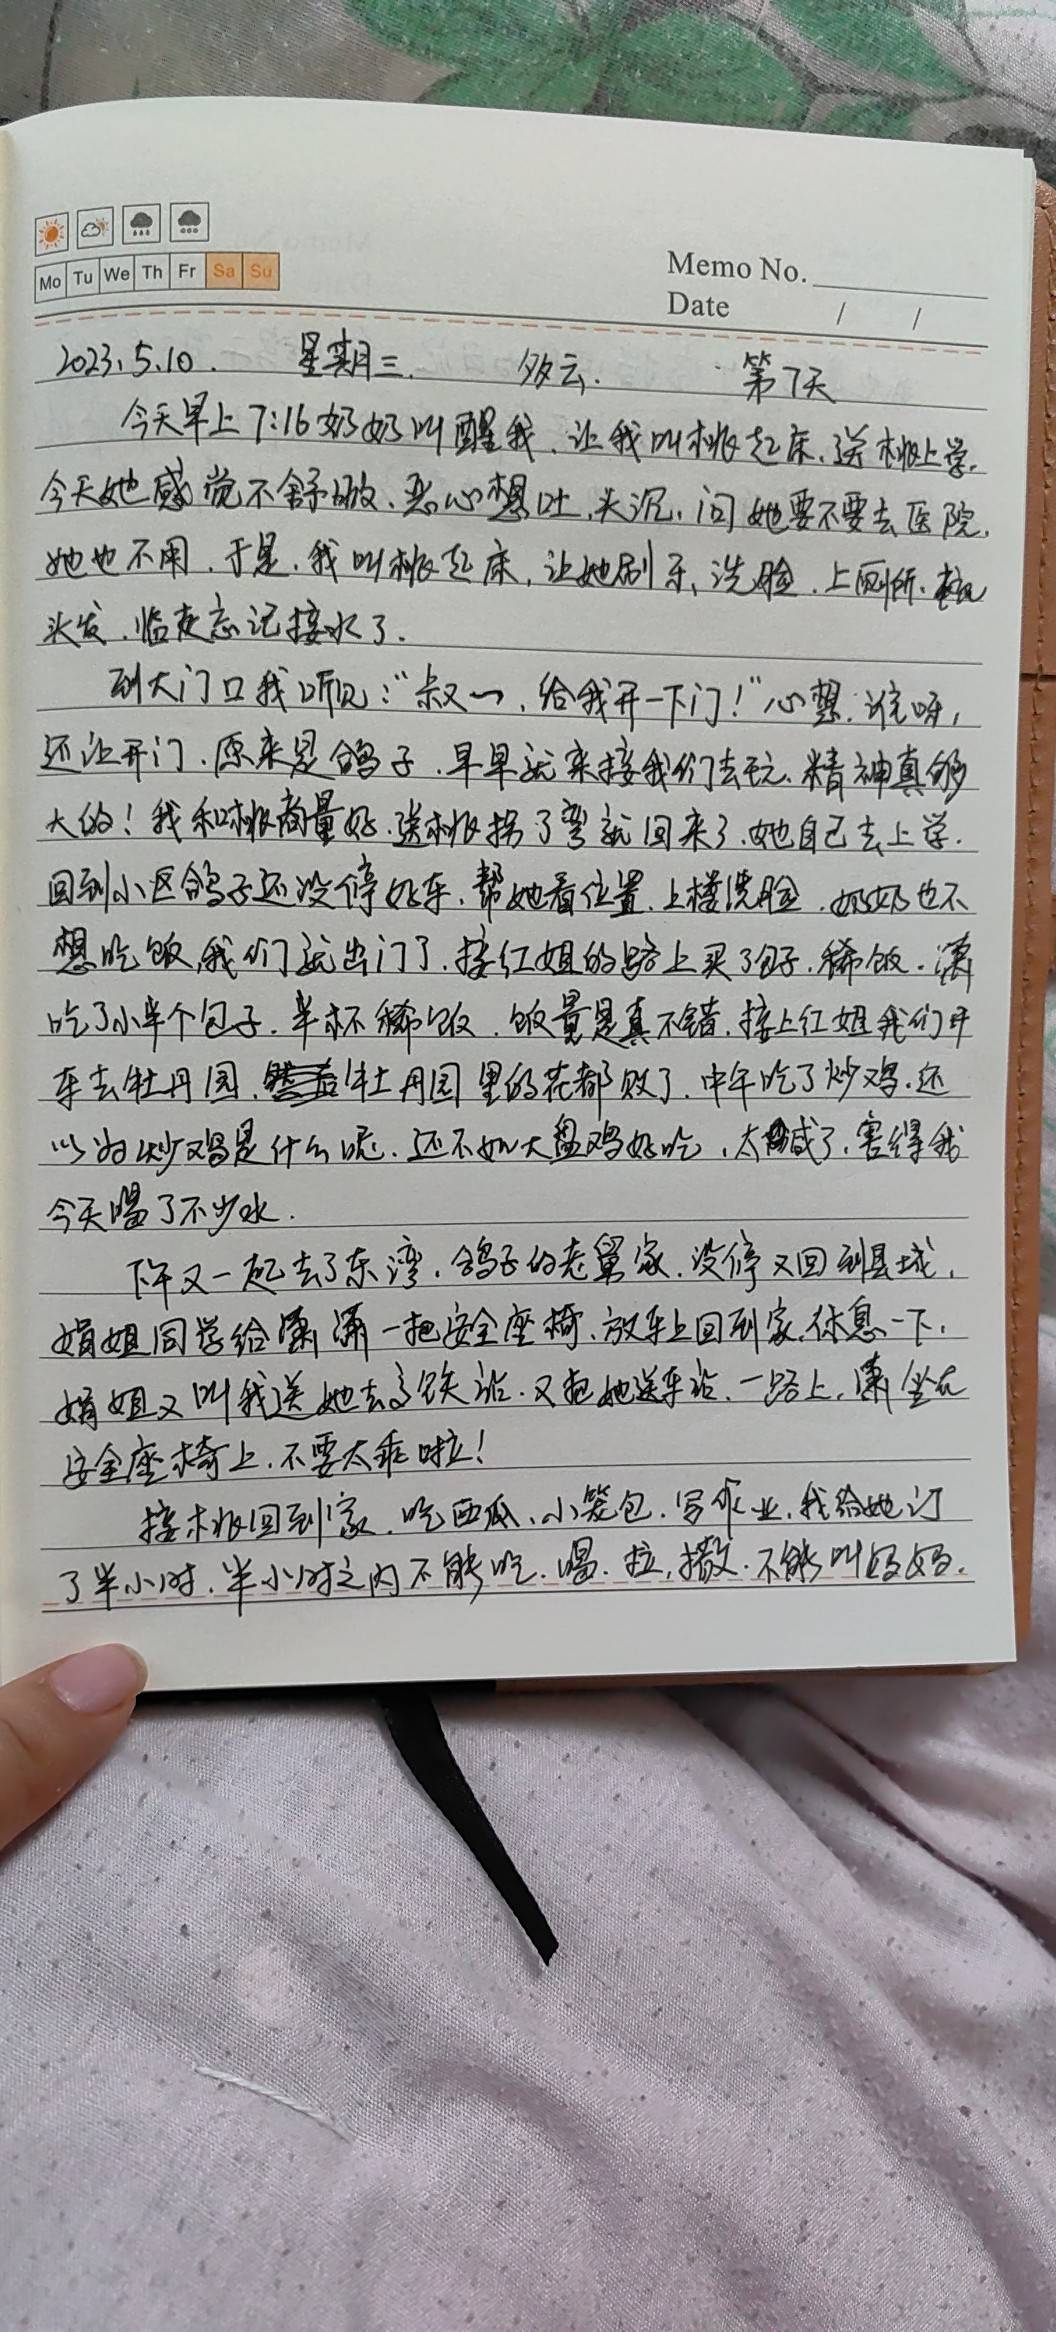 Mo Tu We Th Fr Sa Su
Memo No.
Date / /
2023.5.10. 星期三. 多云. 第7天
今天早上7:16奶奶叫醒我,让我叫桃起床,送桃上学.
今天她感觉不舒服、恶心想吐,头沉,问她要不要去医院,
她也不用,于是,我叫桃起床,让她刷牙、洗脸、上厕所、梳
头发,临走忘记接水了.
到大门口我听见:“叔一,给我开一下门!”心想:谁呀,
还让开门,原来是鸽子,早早就来接我们去玩,精神真够
大的!我和桃商量好,送桃拐了弯就回来了,她自己去上学.
回到小区鸽子还没停好车,帮她看位置,上楼洗脸,奶奶也不
想吃饭,我们就出门了,接红姐的路上买了包子,稀饭.潇
吃了小半个包子,半杯稀饭,饭量是真不错,接上红姐我们开
车去牡丹园,牡丹园里的花都败了,中午吃了炒鸡,还
以为炒鸡是什么呢,还不如大盘鸡好吃,太咸了,害得我
今天喝了不少水.
下午又一起去了东湾,鸽子的老舅家,没停又回到县城,
娟姐同学给潇潇一把安全座椅,放车上回到家,休息一下,
娟姐又叫我送她去高铁站,又把她送车站,一路上,潇坐在
安全座椅上,不要太乖啦!
接桃回到家,吃西瓜、小笼包,写作业,我给她订
了半小时,半小时之内不能吃、喝、拉,撒.不能叫妈妈.